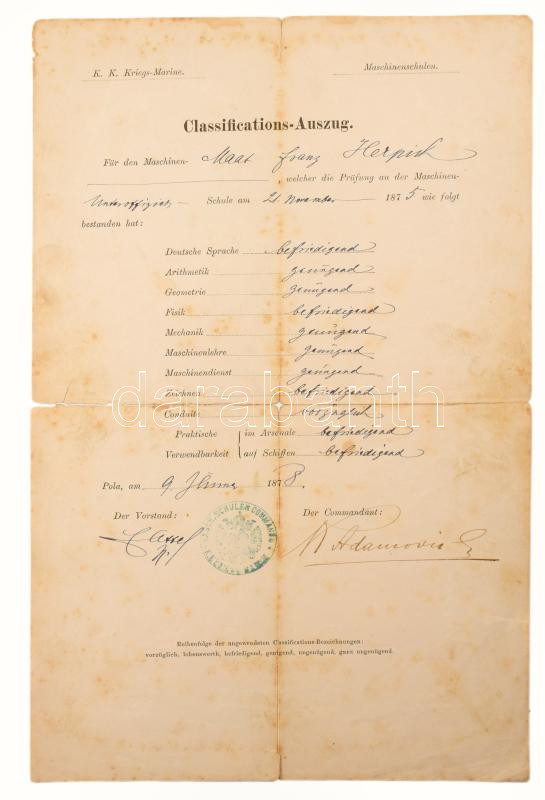 K. K. Kriegs-Marine.
Maschinenschulen.
Classifications-Auszug.
Für den Maschinen- Maat Franz Herpich
welcher die Prüfung an der Maschinen-
Unteroffiziers- Schule am 21 November 1875 wie folgt
bestanden hat:
Deutsche Sprache befriedigend
Arithmetik genügend
Geometrie genügend
Fisik befriedigend
Mechanik genügend
Maschinenlehre genügend
Maschinendienst genügend
Zeichnen befriedigend
darabanth
Conduite vorzüglich
Praktische im Arsenale befriedigend
Verwendbarkeit auf Schiffen befriedigend
Pola, am 9. 1878.
Der Vorstand:
Der Commandant:
Reihenfolge der angewendeten Classifications-Bezeichnungen:
vorzüglich, lobenswerth, befriedigend, genügend, ungenügend, ganz ungenügend.